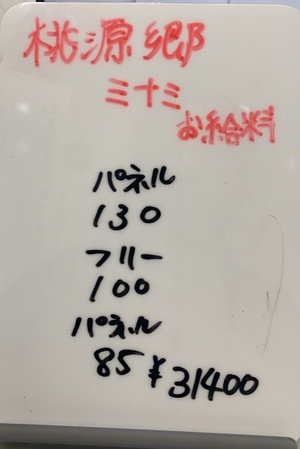 桃源郷
三十三
お給料
パネル
130
フリー
100
パネル
85 ¥31400